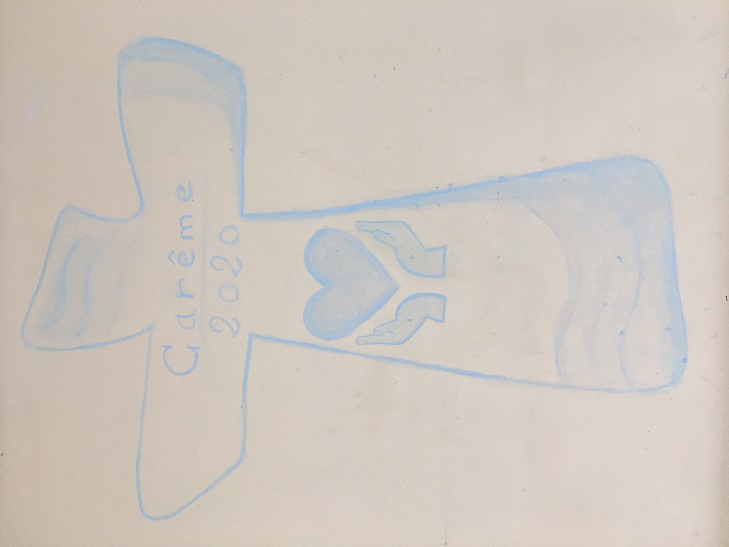 Carême
2020